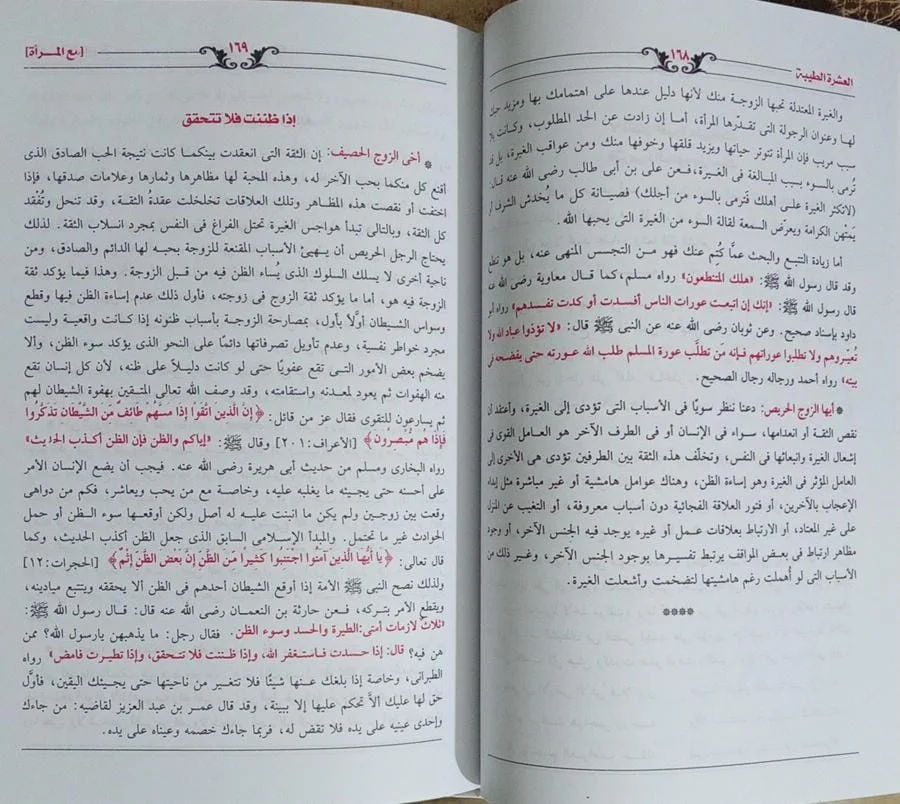 العشرة الطيبة
١٦٨
والغيرة المعتدلة تحبها الزوجة منك لأنها دليل عندها على اهتمامك بها ومزيد
لها وعنوان الرجولة التى تقدّرها المرأة، أما إن زادت عن الحد المطلوب، وكانت
سبب مريب فإن المرأة تتوتر حياتها ويزيد قلقها وخوفها منك ومن عواقب الغيرة، بل
تُرمى بالسوء بسبب المبالغة فى الغيرة، فعن على بن أبى طالب رضى الله عنه قال:
(لاتكثر الغيرة على أهلك فَترمى بالسوء من أجلك) فصيانة كل ما يُخدش الشرف
يَمتْهن الكرامة ويعرّض السمعة لقالة السوء من الغيرة التى يحبها الله.
أما زيادة التتبع والبحث عمَّا كُتِم عنك فهو مـن التجسس المنهى عنه، بل هو
وقد قال رسول الله ﷺ: «هلك المتنطعون» رواه مسلم، كما قـال معاوية رضى الله
قال رسول الله ﷺ: «إنك إن اتبعت عورات الناس أفسدت أو كدت تفسدهم» رواه
داود بإسناد صحيح. وعن ثوبان رضى الله عنه عن النبى ﷺ قال: «لا تؤذوا عباد الله ولا
تُعيّروهم ولا تطلبوا عوراتهم فإنه مَن تطلَّب عورة المسلم طلب الله عورته حتى يفضحه فى
بيته» رواه أحمد ورجاله رجال الصحيح.
* أيها الزوج الحريص: دعنا ننظر سويًا فى الأسباب التى تؤدى إلى الغيرة، وأعتقد أن
نقص الثقة أو انعدامها، سواء فى الإنسان أو فى الطرف الآخر هو العامل القوى فى
إشعال الغيرة وانبعاثها فى النفس، وتخلّف هذه الثقة بين الطرفين تؤدى هى الأخرى إلى
العامل المؤثر فى الغيرة وهو إساءة الظن، وهناك عوامل هامشية أو غير مباشرة مثل إبداء
الإعجاب بالآخرين، أو فتور العلاقة الفجائية دون أسباب معروفة، أو التغيب عن المنزل
على غير المعتاد، أو الارتباط بعلاقات عمـل أو غيره يوجد فيه الجنس الآخر، أو وجود
مظاهر ارتباط فى بعـض المواقف يرتبط تفسيرها بوجود الجنس الآخر، وغير ذلك من
الأسباب التى لو أُهملت رغم هامشيتها لتضخمت وأشعلت الغيرة.
****
١٦٩
[مع المـرأة]
إذا ظننت فلا تتحقق
* أخى الزوج الحصيف: إن الثقة التى انعقدت بينكمـا كانت نتيجة الحب الصادق الذى
أقنع كل منكما بحب الآخر له، وهذه المحبة لها مظاهرها وثمارها وعلامات صدقها، فإذا
اختفت أو نقصت هذه المظـاهر وتلك العلاقات تخلخلت عقدةُ الثقـة، وقد تنحل وتُفْقد
كل الثقة، وبالتالى تبدأ هواجس الغيرة تحتل الفراغ فى النفس بمجرد انسلاب الثقة. لذلك
يحتاج الرجل الحريص أن يهيئ الأسباب المقنعة للزوجة بحبه لها الدائم والصادق، ومن
ناحية أخرى لا يسلك السلوك الذى يُساء الظن فيه من قبل الزوجة. وهذا فيما يؤكد ثقة
الزوجة فيه هو، أما ما يؤكد ثقة الزوج فى زوجته، فأول ذلك عدم إساءة الظن فيها وقطع
وسواس الشيطان أولًا بأول، بمصارحة الزوجة بأسباب ظنونه إذا كانت واقعية وليست
مجرد خواطر نفسية، وعدم تأويل تصرفاتها دائمًا على النحو الذى يؤكد سوء الظن، وألا
يضخم بعض الأمور التى تقع عفويًا حتى لو كانت دليلاً على ظنه، لأن كل إنسان تقع
منه الهفوات ثم يعود لمعدنه واستقامته، وقد وصف الله تعالى المتـقين بهفوة الشيطان لهم
ثم يسارعون للتقوى فقال عز من قائل: ﴿إِنَّ الَّذِينَ اتَّقَوْا إِذَا مَسَّهُمْ طَائِفٌ مِّنَ الشَّيْطَانِ تَذَكَّرُوا
فَإِذَا هُم مُّبْصِرُونَ﴾ [الأعراف: ٢٠١] وقال ﷺ: «إياكم والظن فإن الظن أكذب الحديث»
رواه البخارى ومسلم من حديث أبى هريرة رضى الله عنه. فيجب أن يضع الإنسان الأمر
على أحسنه حتى يجيئه ما يغلبه عليه، وخاصـة مع من يحب ويعاشر، فكم من دواهى
وقعت بين زوجـين ولم يكن ما انبنت عليـه له أصل ولكن أوقعـها سوء الـظن أو حمل
الحوادث غير ما تحتمل. والمبدأ الإسلامى السابق الذى جعل الظن أكذب الحديث، وكما
قال تعالى: ﴿يَا أَيُّهَا الَّذِينَ آمَنُوا اجْتَنِبُوا كَثِيرًا مِّنَ الظَّنِّ إِنَّ بَعْضَ الظَّنِّ إِثْمٌ﴾ [الحجرات: ١٢]
ولذلك نصح النبى ﷺ الأمة إذا أوقع الشيطان أحدهم فى الظن ألا يحققه ويتتبع ميادينه،
ويقطع الأمر بتـركه، فـعن حارثة بن النعمـان رضى الله عنه قال: قـال رسول الله ﷺ:
«ثلاثٌ لازمات أمتى: الطيرة والحسد وسوء الظن. فقال رجل: ما يذهبهن يارسول الله؟ ممن
هن فيه؟ قال: إذا حسدت فـاستغفر الله، وإذا ظننت فلا تتحقق، وإذا تطيرت فامض» رواه
الطبرانى، وخاصة إذا بلغك عنـها شيئًا فلا تتغير من ناحيتها حتى يجيئك اليقين، فأوَّل
حق لها عليك ألاَّ تحكم عليها إلا ببينة، وقد قال عمـر بن عبد العزيز لقاضيه: من جاءك
وإحدى عينيه على يده فلا تقض له، فربما جاءك خصمه وعيناه على يده.